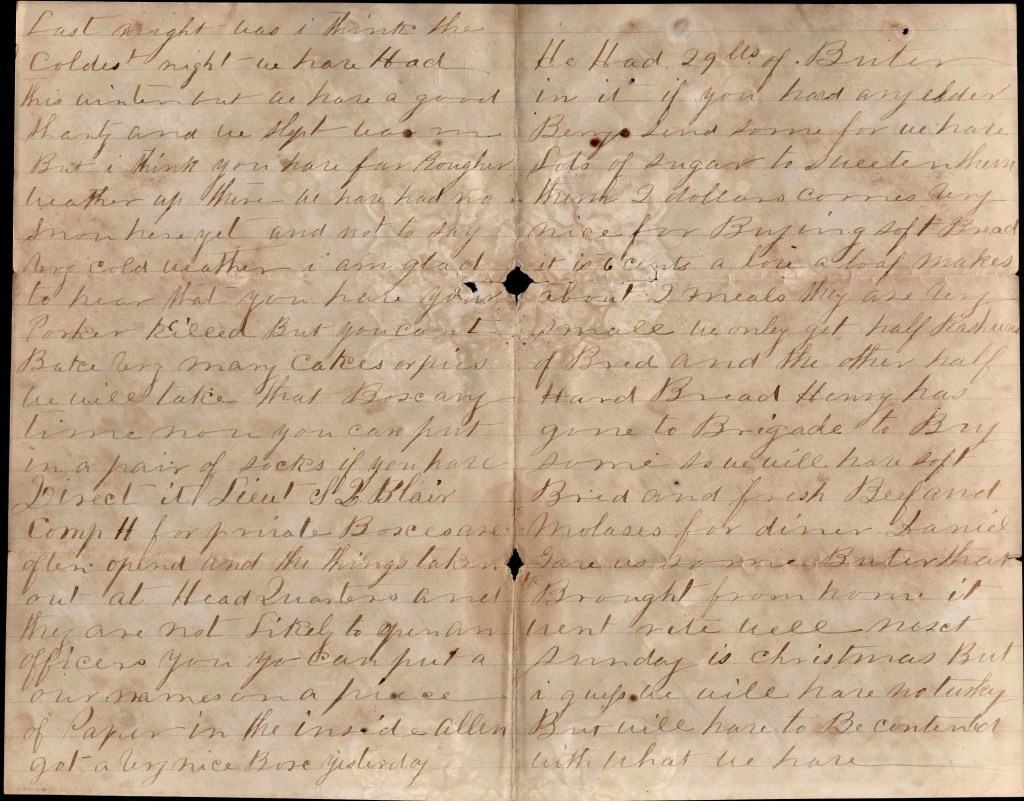 Last night was i think the
Coldest night we have Had
this winter but we have a good
Shanty and we slept warm
But i think you have far Rougher
weather up there we have had no
Snow here yet and not to say
very cold weather i am glad
to hear that you have your
Porker killed But you cant
Bake very many cakes or pies
we will take that Boxc any
time now you can put
in a pair of socks if you have
Direct it Lieut S L Blair
Comp H for private Boxces are
often opend and the things taken
out at Head Quarters and
they are not likely to open an
officers you yo can put a
our names on a piece
of Paper in the inside Allen
got a very nice Boxc yisterday
He Had 29 lbs. of Buter
in it if you had any elder
Berrys send some for we have
Lots of sugar to sweeten them
them 2 dollars comes very
nice for Buying soft Bread
it is 6 cents a lofe a loaf makes
about 2 meals they are very
small we only get half
of Bred and the other half
Hard Bread Henry has
gone to Brigade to Buy
some so we will have soft
Bred and fresh Beef and
Molases for diner Daniel
Gave us some Buter that
he Brought from home it
went rite well nexct
sunday is christmas But
i guess we will have no turky
But will have to Be contened
with what we have